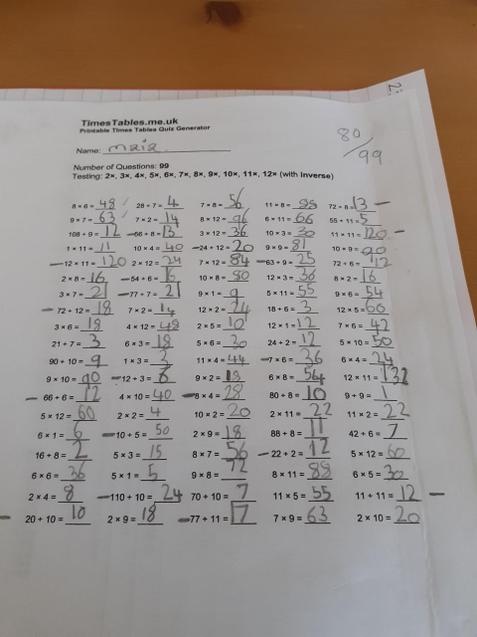 TimesTables.me.uk
Printable Times Tables Quiz Generator
80/99
Name: maia
Number of Questions: 99
Testing: 2×, 3×, 4×, 5×, 6×, 7×, 8×, 9×, 10×, 11×, 12× (with Inverse)
8 × 6 = 48 28 ÷ 7 = 4 7 × 8 = 56 11 × 9 = 99 72 ÷ 8 = 13
9 × 7 = 63 7 × 2 = 14 8 × 12 = 96 6 × 11 = 66 55 ÷ 11 = 5
108 ÷ 9 = 12 66 ÷ 6 = 13 3 × 12 = 36 10 × 3 = 30 11 × 11 = 120
1 × 11 = 11 10 × 4 = 40 24 ÷ 12 = 20 9 × 9 = 81 10 × 9 = 90
12 × 11 = 120 2 × 12 = 24 7 × 12 = 84 63 ÷ 9 = 25 72 ÷ 6 = 12
2 × 8 = 16 54 ÷ 6 = 10 × 8 = 80 12 × 3 = 36 8 × 2 = 16
3 × 7 = 21 77 ÷ 7 = 21 9 × 1 = 9 5 × 11 = 55 9 × 6 = 54
72 ÷ 12 = 18 7 × 2 = 14 12 × 2 = 24 18 ÷ 6 = 3 12 × 5 = 60
3 × 6 = 18 4 × 12 = 48 2 × 5 = 10 12 × 1 = 12 7 × 6 = 42
21 ÷ 7 = 3 6 × 3 = 18 5 × 6 = 30 24 ÷ 2 = 12 5 × 10 = 50
90 ÷ 10 = 9 1 × 3 = 3 11 × 4 = 44 7 × 6 = 36 6 × 4 = 24
9 × 10 = 90 12 ÷ 3 = 6 9 × 2 = 18 6 × 8 = 12 × 11 = 132
66 ÷ 6 = 12 4 × 10 = 40 8 × 4 = 28 80 ÷ 8 = 10 9 ÷ 9 = 1
5 × 12 = 60 2 × 2 = 4 10 × 2 = 20 2 × 11 = 22 11 × 2 = 22
6 × 1 = 6 10 ÷ 5 = 50 2 × 9 = 18 88 ÷ 8 = 11 42 ÷ 6 = 7
16 ÷ 8 = 2 5 × 3 = 15 8 × 7 = 56 22 ÷ 2 = 12 5 × 12 = 60
6 × 6 = 36 5 × 1 = 5 9 × 8 = 72 8 × 11 = 88 6 × 5 = 30
2 × 4 = 8 110 ÷ 10 = 24 70 ÷ 10 = 7 11 × 5 = 55 11 ÷ 11 = 12
20 ÷ 10 = 10 2 × 9 = 18 77 ÷ 11 = 17 7 × 9 = 63 2 × 10 = 20